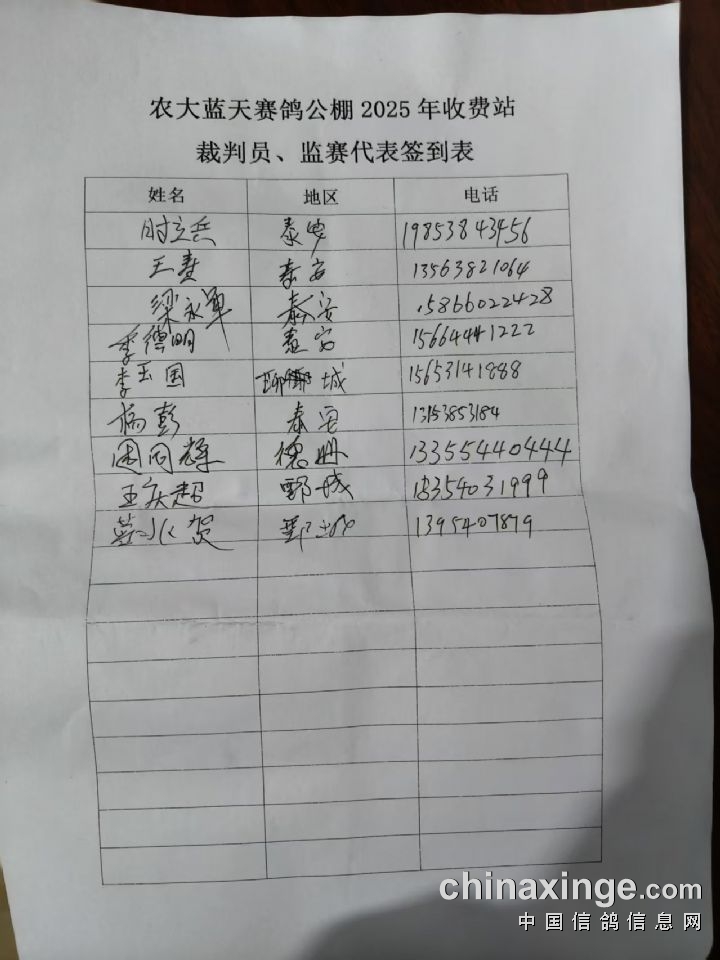 农大蓝天赛鸽公棚2025年收费站
裁判员、监赛代表签到表
姓名 地区 电话
时立兵 泰安 19853843456
王 泰安 13563821064
梁永军 泰安 15866022428
李德明 泰安 15664441222
李玉国 聊城 15653141888
杨彭 泰安 13153853184
周同辉 德州 13355440444
王庆超 鄄城 15354031999
贺 鄄城 1395407879
chinaxinge.com
中国信鸽信息网